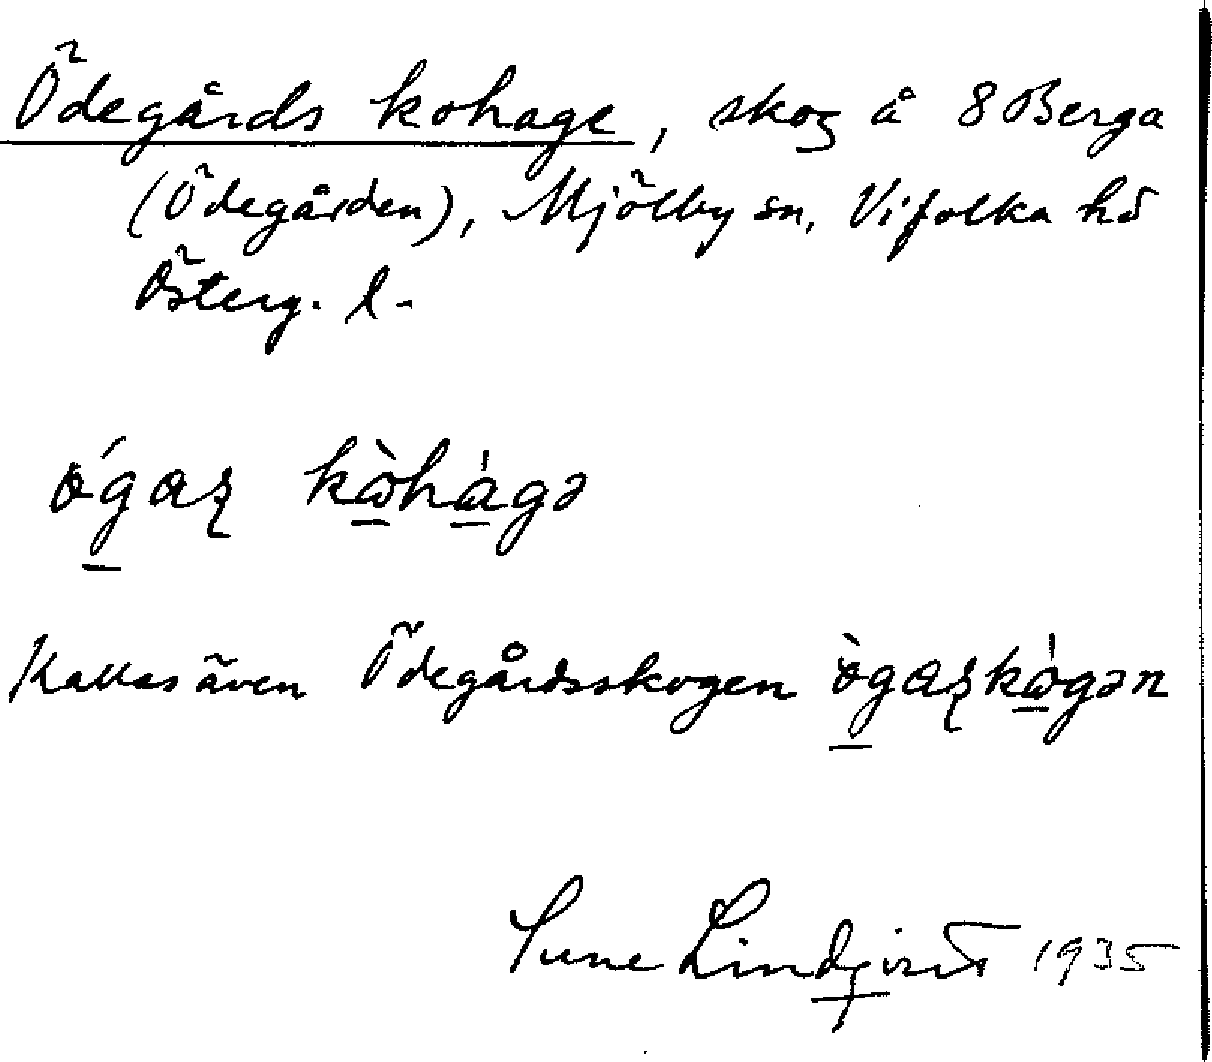 Ödegårds kohage, skog å 8 Berga
(Ödegården), Mjölby sn, Vifolka hd
Österg. l.
kalλas även Ödegårdsskogen
Sune Lindqvist 1935